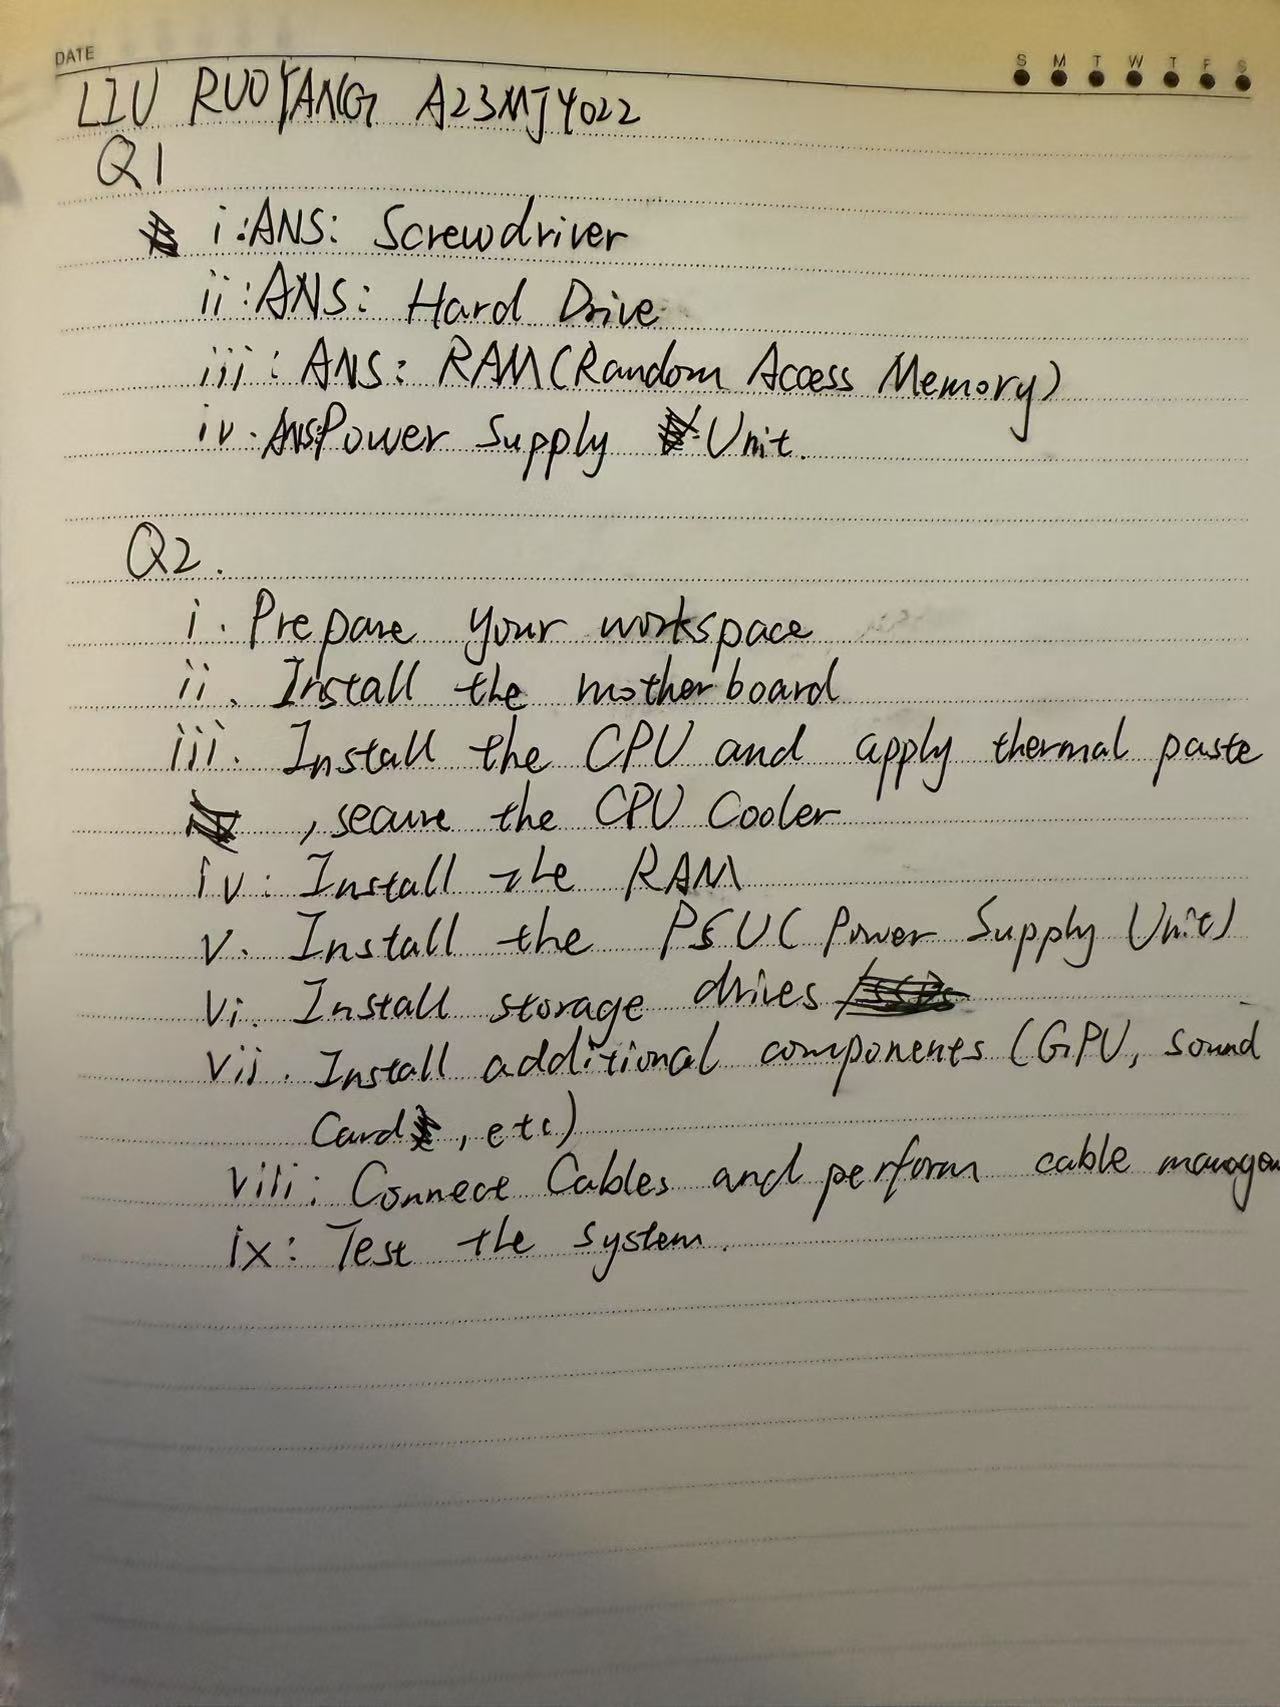 DATE
S M T W T F S
LIU RUOYANG A23MJ4022
Q1
i:ANS: Screwdriver
ii:ANS: Hard Drive
iii: ANS: RAM(Random Access Memory)
iv. ANS:Power Supply Unit.
Q2.
i. Prepare your workspace
ii. Install the motherboard
iii. Install the CPU and apply thermal paste
, secure the CPU Cooler
iv: Install the RAM
v. Install the PSU( Power Supply Unit)
vi. Install storage drives
vii. Install additional components (GPU, sound
Card, etc)
viii: Connect Cables and perform cable
ix: Test the system.